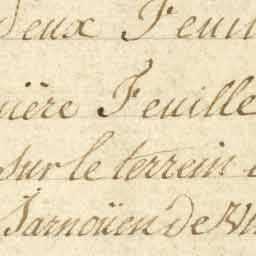 deux Feuil
ière Feuille
sur le terrein
Jarnoüen de Vi